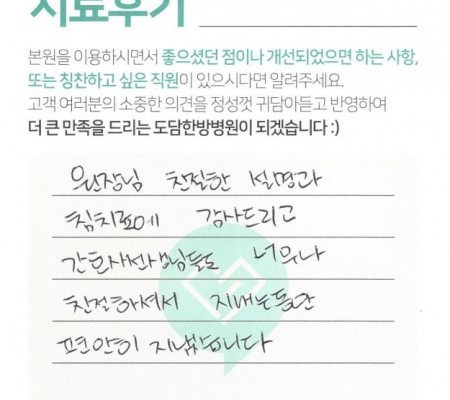 치료후기
본원을 이용하시면서 좋으셨던 점이나 개선되었으면 하는 사항,
또는 칭찬하고 싶은 직원이 있으시다면 알려주세요.
고객 여러분의 소중한 의견을 정성껏 귀담아듣고 반영하여
더 큰 만족을 드리는 도담한방병원이 되겠습니다 :)
원장님 친절한 설명과
침치료에 감사드리고
간호사선생님들도 너무나
친절하셔서 지내는동안
편안히 지냈습니다